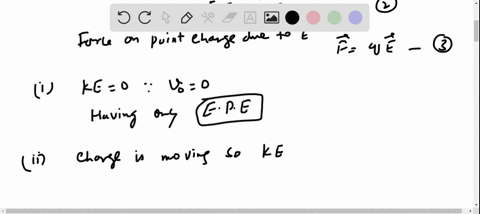 ②
Force on point charge due to E
F⃗ = qE⃗ — ③
(i) KE = 0 ∵ V₀ = 0
Having only E.P.E
(ii) Charge is moving so KE